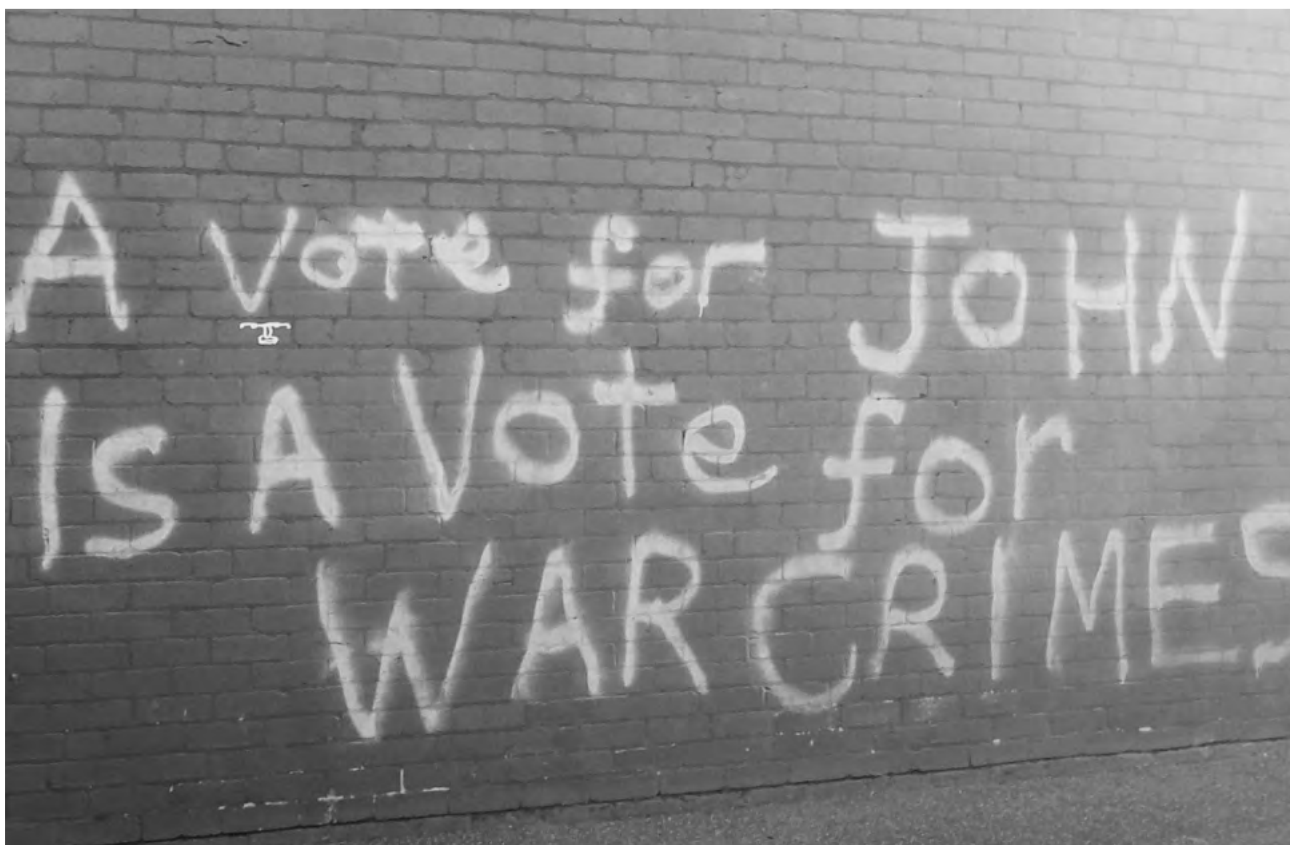 A vote for JOHN
Is A Vote for
WAR CRIMES